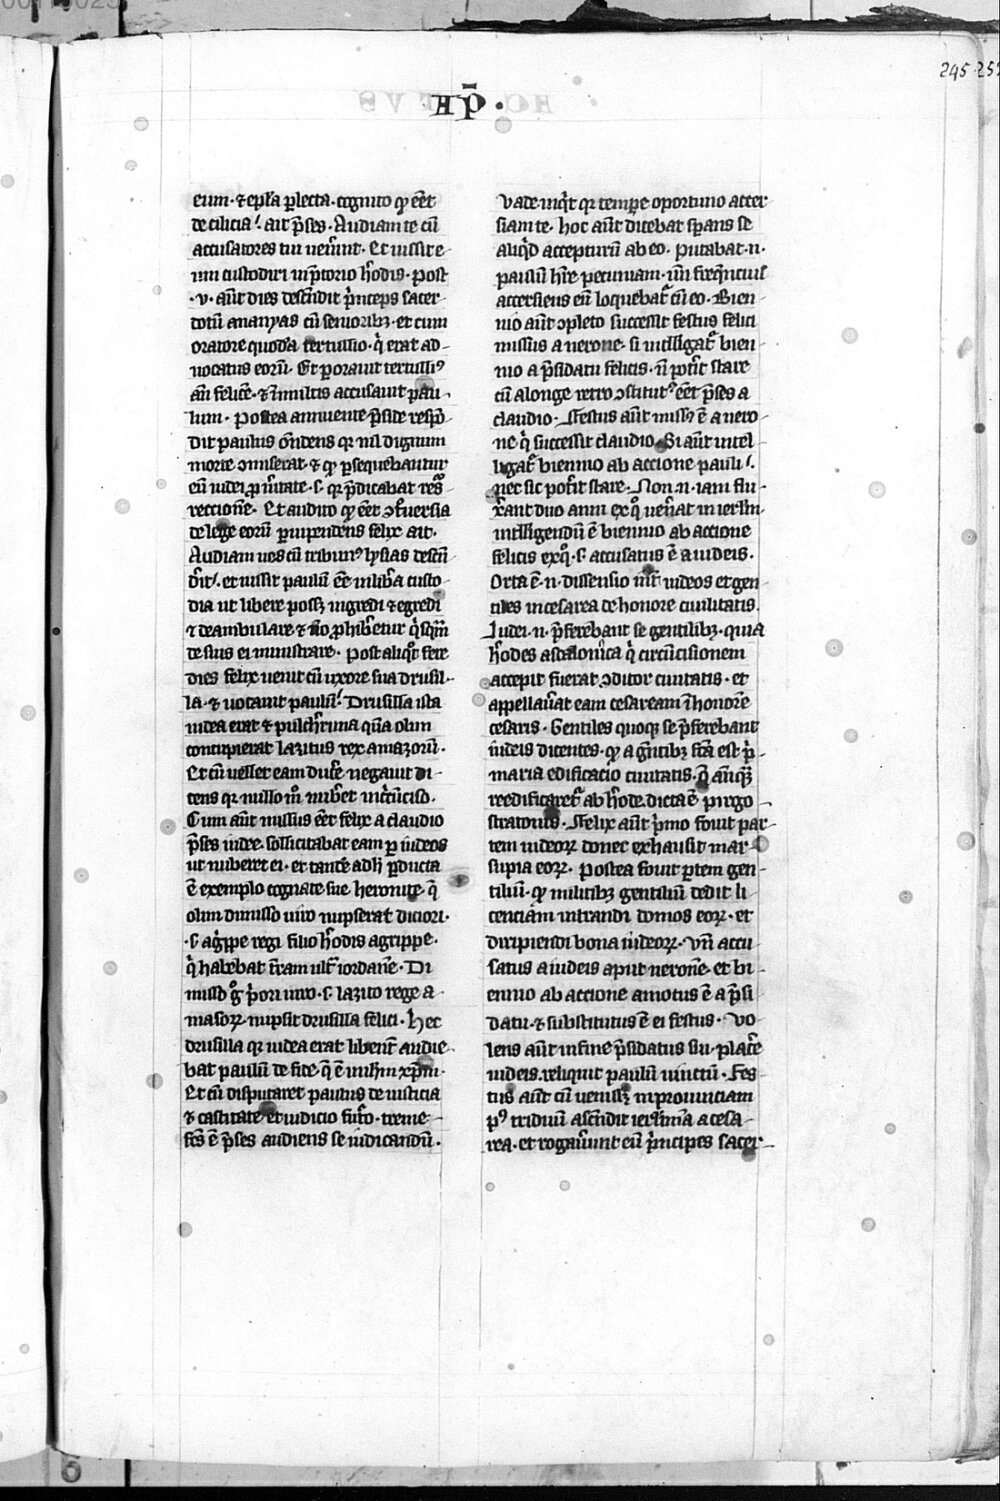 245 252
Hp̄.
eum. ⁊ ep̄la ꝑlecta. cognito qꝫ eēt
de cilicia. ait p̄ses. Audiam te cū
accusatores tui uen̄int. Et iussit e-
um custodiri in p̄torio h̄odis. Post
.v. aūt dies descēdit p̄nceps sacer
dotū ananyas cū senioribꝫ. et cum
oratore quodā tertullio. q̄ erat ad-
uocatus eorū. Et ꝑorauit tertullius
añ felicē. ⁊ in multis accusauit pau-
lum. Postea annuente p̄side respō
dit paulus ōndens qꝛ nil dignum
morte ꝯmiserat. ⁊ qꝫ ꝑsequebantur
eū iudei ꝓ ueritate. s. qꝛ p̄dicabat res
reccionē. Et audito qꝫ eēt ꝯtuersia
de lege eorū ꝑuipendens felix ait.
Audiam uos cū tribunꝰ lysias descēd
derit. et iussit paulū eē in libera custo
dia ut libere possꝫ ingredi ⁊ egredi
⁊ deambulare ⁊ nō ꝓhiberetur q̄sqm̄
de suis ei ministrare. Post aliqt̄ fere
dies felix uenit cū uxore sua drusil-
la. ⁊ uocauit paulū. Drusilla ista
iudea erat ⁊ pulcherrima quā olim
concupierat lazitus rex amazorū.
Et cū uellet eam ducere negauit di-
cens qꝛ nullo mō nuberet incircūciso.
Cum aūt missus eēt felix a claudio
p̄ses iudee. sollicitabat eam ꝑ iudeos
ut nuberet ei. et tandē ad hoc ꝑducta
ē exemplo cognate sue heronice. q̄
olim dimisso uiro nupserat diciori.
.s. agrippe regi filio h̄odis agrippe.
q̄ habebat terram ultra iordanē. Di
misso g̊ priori uiro .s. lazito rege a-
masoꝝ. nupsit drusilla felici. Hec
drusilla qꝛ iudea erat libenter audie
bat paulū de fide. q̄ ē in ihm xpm.
Et cū disputaret paulus de iusticia
⁊ castitate et iudicio futuro. treme-
fcs ē p̄ses audiens se iudicandū.
Vade inquit qꝛ tempore oportuno accer
siam te. hoc aūt dicebat sperans se
aliquid accepturū ab eo. putabat .n.
paulū habere pecuniam. un̄ frequencius
accersiens eū loquebatur cū eo. Bien-
nio aūt ꝯpleto successit festus felici
missus a nerone. si intelligatur bien
nio a p̄sidatu felicis. nō poterit stare
cū a longe retro ꝯstitutꝰ eēt p̄ses a
claudio. Festus aūt missꝰ ē a nero-
ne q̄ successit claudio. Si aūt intel-
ligatur biennio ab accione pauli.
nec sic poterit stare. Non .n. iam flu
xerant duo anni ex quo uenerat in ierlm̄
intelligendū ē biennio ab accione
felicis ex quo .s. accusatus ē a iudeis.
Orta ē .n. dissensio inter iudeos et gen-
tiles in cesarea de honore ciuilitatis.
Iudei .n. p̄ferebant se gentilibꝫ. quia
h̄odes ascalonita q̄ circūcisionem
accepit fuerat ꝯditor ciuitatis. et
appellauerat eam cesaream in honorē
cesaris. Gentiles quoqꝫ se p̄ferebant
iudeis dicentes. qꝫ a gentibꝫ fcā est p̄-
maria edificacio ciuitatis. q̄ antequam
reedificaretur ab h̄ode. dicta ē pirgo-
stratonis. Felix aūt p̄mo fouit par-
tem iudeoꝝ donec exhausit mar
supia eoꝝ. Postea fouit partem gen-
tiliū. qꝫ militibꝫ gentiliū dedit li
cenciam intrandi domos eoꝝ. et
diripiendi bona iudeoꝝ. Vn̄ accu
satus a iudeis aput neronē. et bi-
ennio ab accione amotus ē a p̄si
datu. ⁊ substitutus ē ei festus. Vo-
lens aūt in fine p̄sidatus sui placere
iudeis. reliquit paulū uinctū. Fes
tus aūt cū uenissꝫ in prouinciam
pꝰ triduū ascendit ierosolimā a cesa-
rea. et rogauerunt eū p̄ncipes sacer-